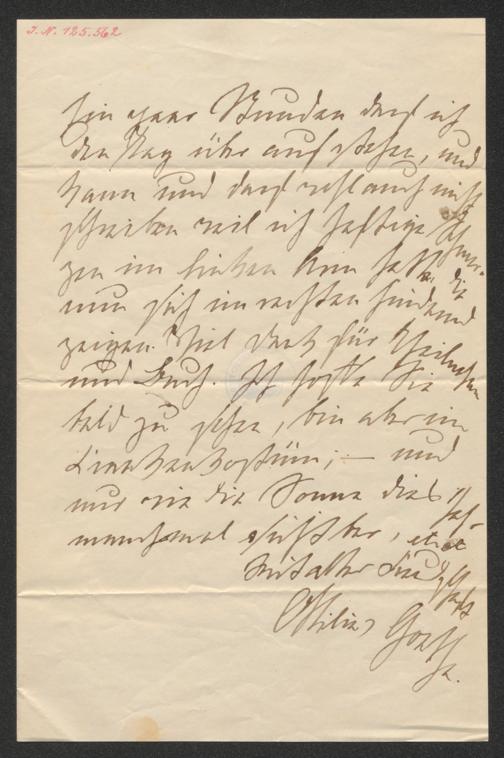 J.N. 125.562
Ein paar Stunden darf ich
den Tag über aufstehen, und
kann und darf wohl auch nicht
schreiben weil ich heftige Schmer-
zen im linken Arm hatte die
nun sich im rechten Hand
zeigen. Viel Dank für Theilnahme
und Buch. Ich hoffe Sie
bald zu sehen, bin aber im
Krankenkostüm, – und
nur wie die Sonne dies Jahr
manchmal sichtbar,
Mit alter Freundschaft
Ottilie v Goethe.